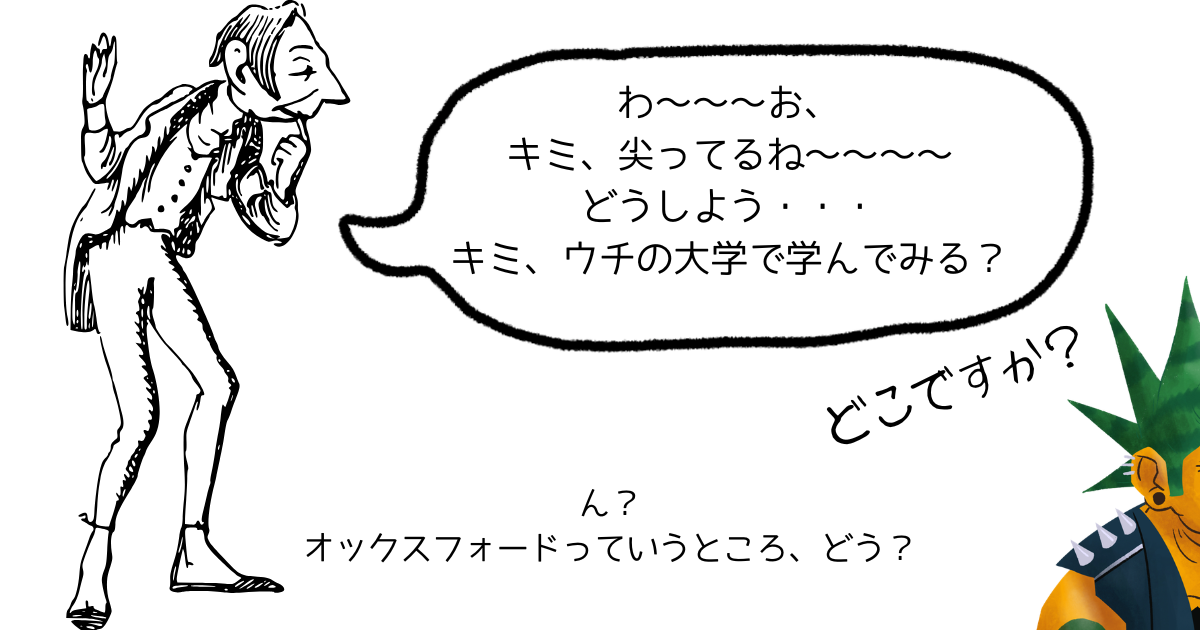 わ〜〜〜お、
キミ、尖ってるね〜〜〜〜
どうしよう・・・
キミ、ウチの大学で学んでみる？
どこですか？
ん？
オックスフォードっていうところ、どう？